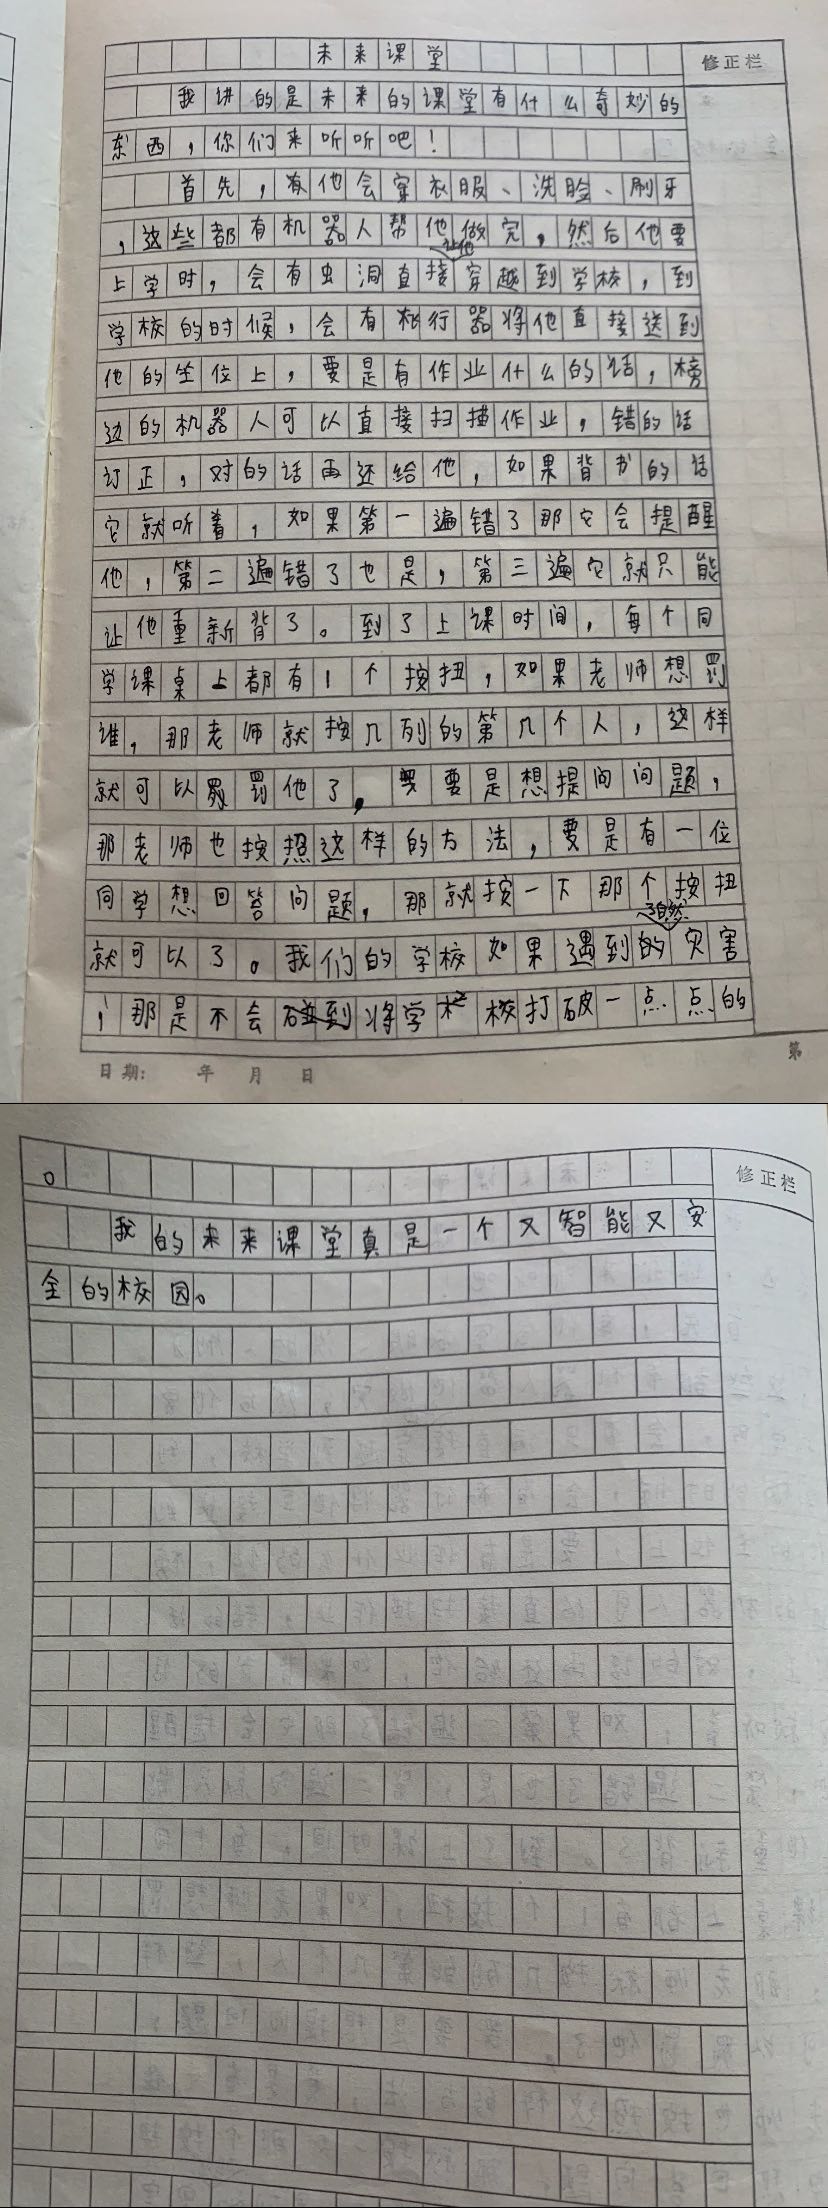 未来课堂
修正栏
我讲的是未来的课堂有什么奇妙的
东西，你们来听听吧！
首先，有他会穿衣服、洗脸、刷牙
，这些都有机器人帮他做完，然后他要
让他
上学时，会有虫洞直接穿越到学校，到
学校的时候，会有机行器将他直接送到
他的坐位上，要是有作业什么的话，榜
边的机器人可以直接扫描作业，错的话
订正，对的话再还给他，如果背书的话
它就听着，如果第一遍错了那它会提醒
他，第二遍错了也是，第三遍它就只能
让他重新背了。到了上课时间，每个同
学课桌上都有1个按扭，如果老师想罚
谁，那老师就按几列的第几个人，这样
就可以罚他了，要是想提问问题，
那老师也按照这样的方法，要是有一位
同学想回答问题，那就按一下那个按扭
了自然
就可以了。我们的学校如果遇到的灾害
，那是不会碰到将学校打破一点点的
日期： 年 月 日
第
修正栏
。
我的未来课堂真是一个又智能又安
全的校园。